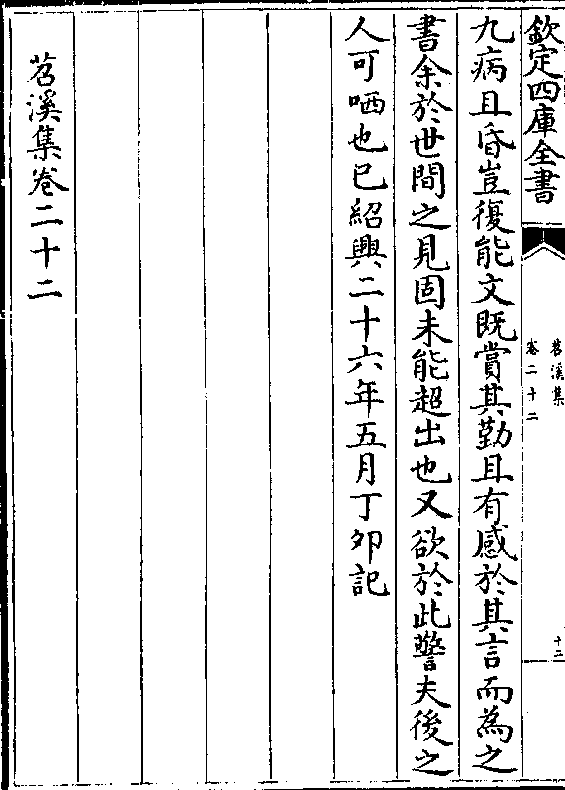 欽定四庫全書
苕溪集
卷二十二
十二
九病且昏豈復能文既賞其勤且有感於其言而為之
書余於世間之見固未能超出也又欲於此警夫後之
人可哂也已紹興二十六年五月丁夘記
苕溪集卷二十二